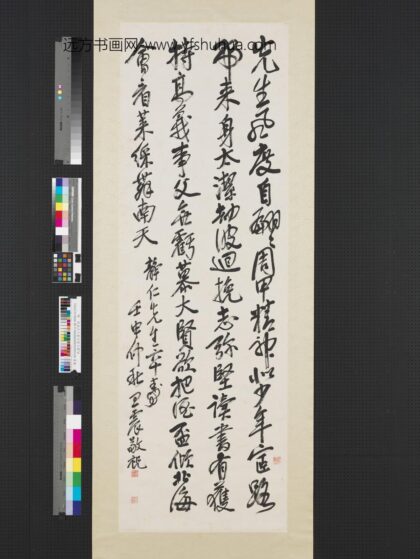 远方书画网 www.yfshuhua.com
先生风度自翩翩周甲精神似少年宦路
归来身太洁劫波回挽志弥坚读书有获
特高义事父无亏慕大贤欲把酒杯倾北海
会看莱彩舞南天
静仁先生六十寿
壬申仲秋王震敬祝